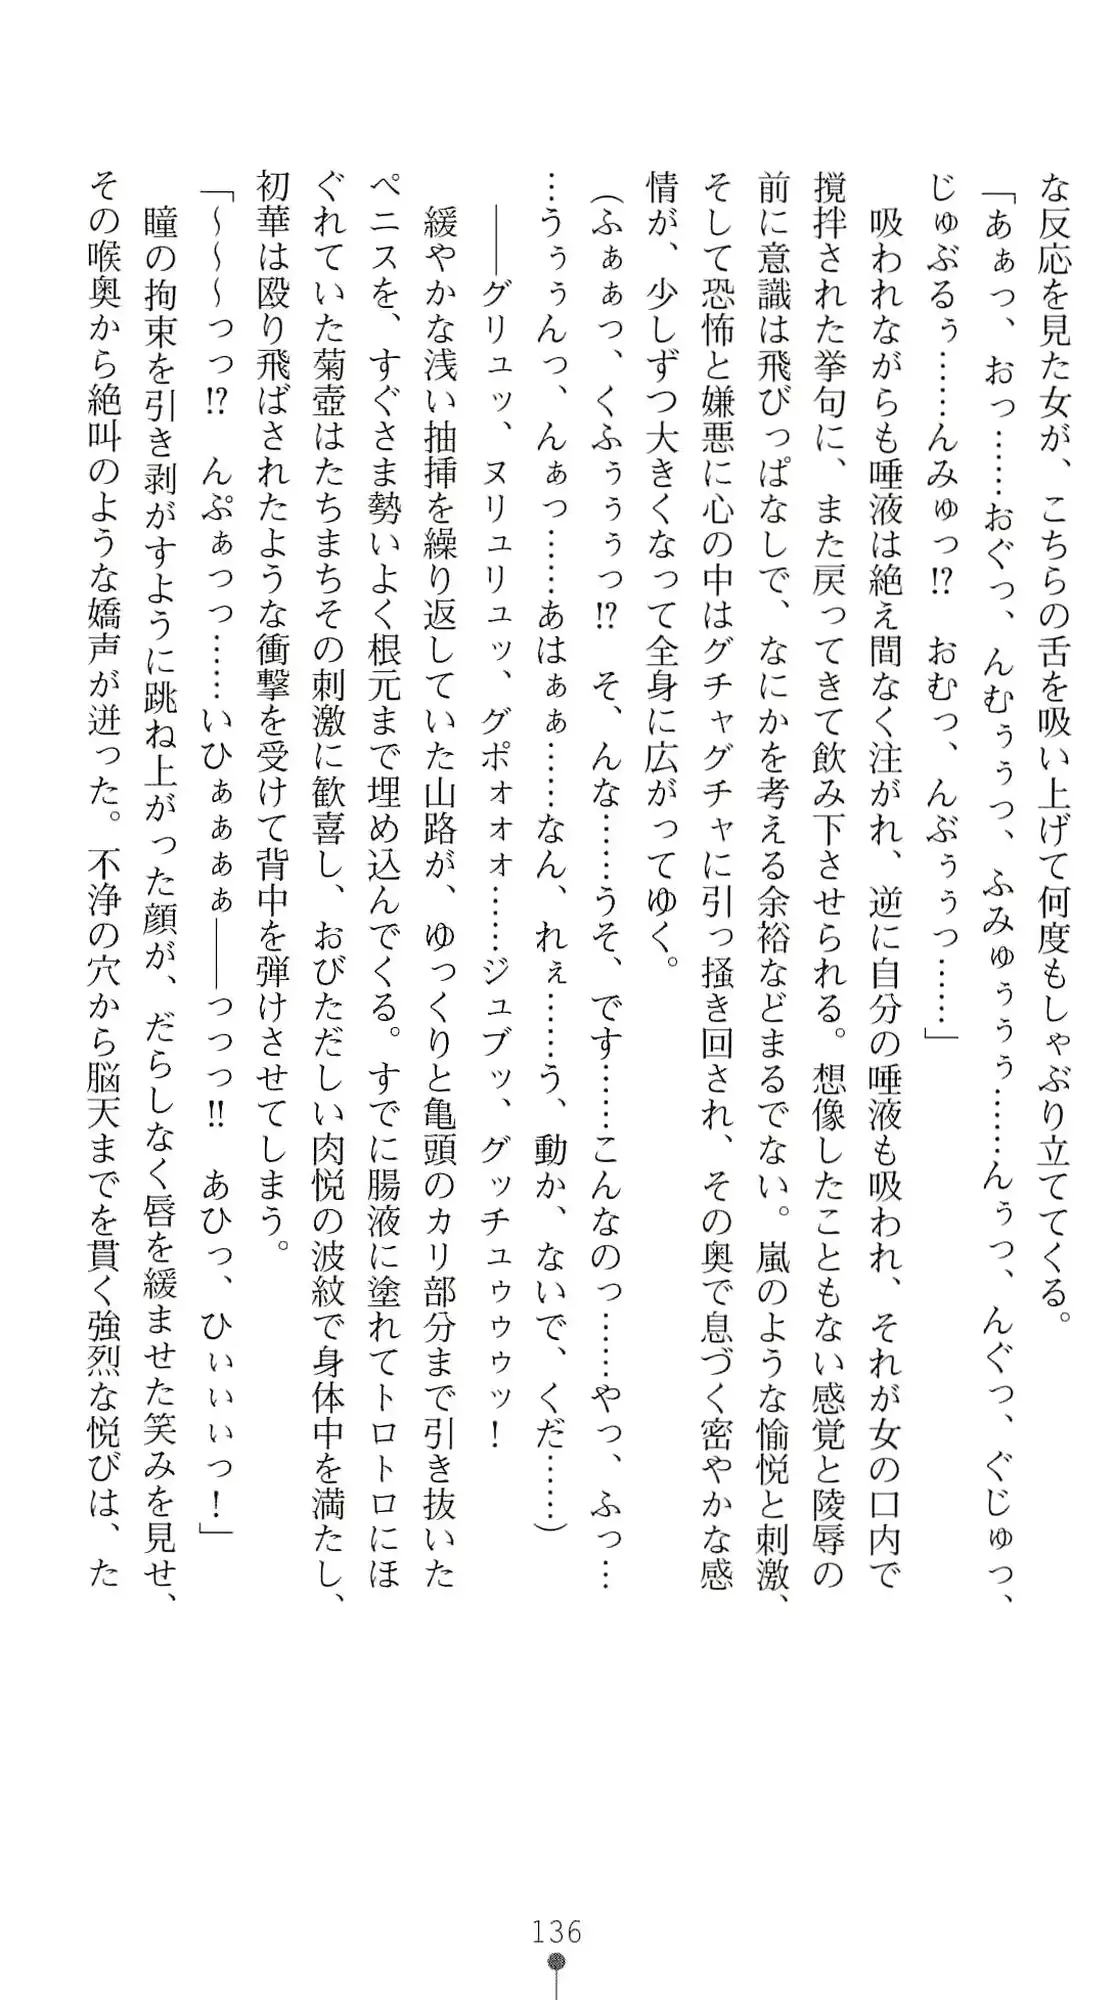 な反応を見た女が、こちらの舌を吸い上げて何度もしゃぶり立ててくる。
「あぁっ、おっ……おぐっ、んむぅぅっ、ふみゅぅぅぅ……んぅっ、んぐっ、ぐじゅっ、
じゅぶるぅ……んみゅっ!? おむっ、んぶぅぅっ……」
吸われながらも唾液は絶え間なく注がれ、逆に自分の唾液も吸われ、それが女の口内で
撹拌された挙句に、また戻ってきて飲み下させられる。想像したこともない感覚と陵辱の
前に意識は飛びっぱなしで、なにかを考える余裕などまるでない。嵐のような愉悦と刺激、
そして恐怖と嫌悪に心の中はグチャグチャに引っ掻き回され、その奥で息づく密やかな感
情が、少しずつ大きくなって全身に広がってゆく。
（ふぁぁっ、くふぅぅぅっ!? そ、んな……うそ、です……こんなのっ……やっ、ふっ…
…うぅぅんっ、んぁっ……あはぁぁ……なん、れぇ……う、動か、ないで、くだ……）
――グリュッ、ヌリュリュッ、グポォォォ……ジュブッ、グッチュゥゥゥッ！
緩やかな浅い抽挿を繰り返していた山路が、ゆっくりと亀頭のカリ部分まで引き抜いた
ペニスを、すぐさま勢いよく根元まで埋め込んでくる。すでに腸液に塗れてトロトロにほ
ぐれていた菊壺はたちまちその刺激に歓喜し、おびただしい肉悦の波紋で身体中を満たし、
初華は殴り飛ばされたような衝撃を受けて背中を弾けさせてしまう。
「～～～っっ!? んぷぁっっ……いひぁぁぁぁ――っっっ!! あひっ、ひぃぃぃっ！」
瞳の拘束を引き剥がすように跳ね上がった顔が、だらしなく唇を緩ませた笑みを見せ、
その喉奥から絶叫のような嬌声が迸った。不浄の穴から脳天までを貫く強烈な悦びは、た
136